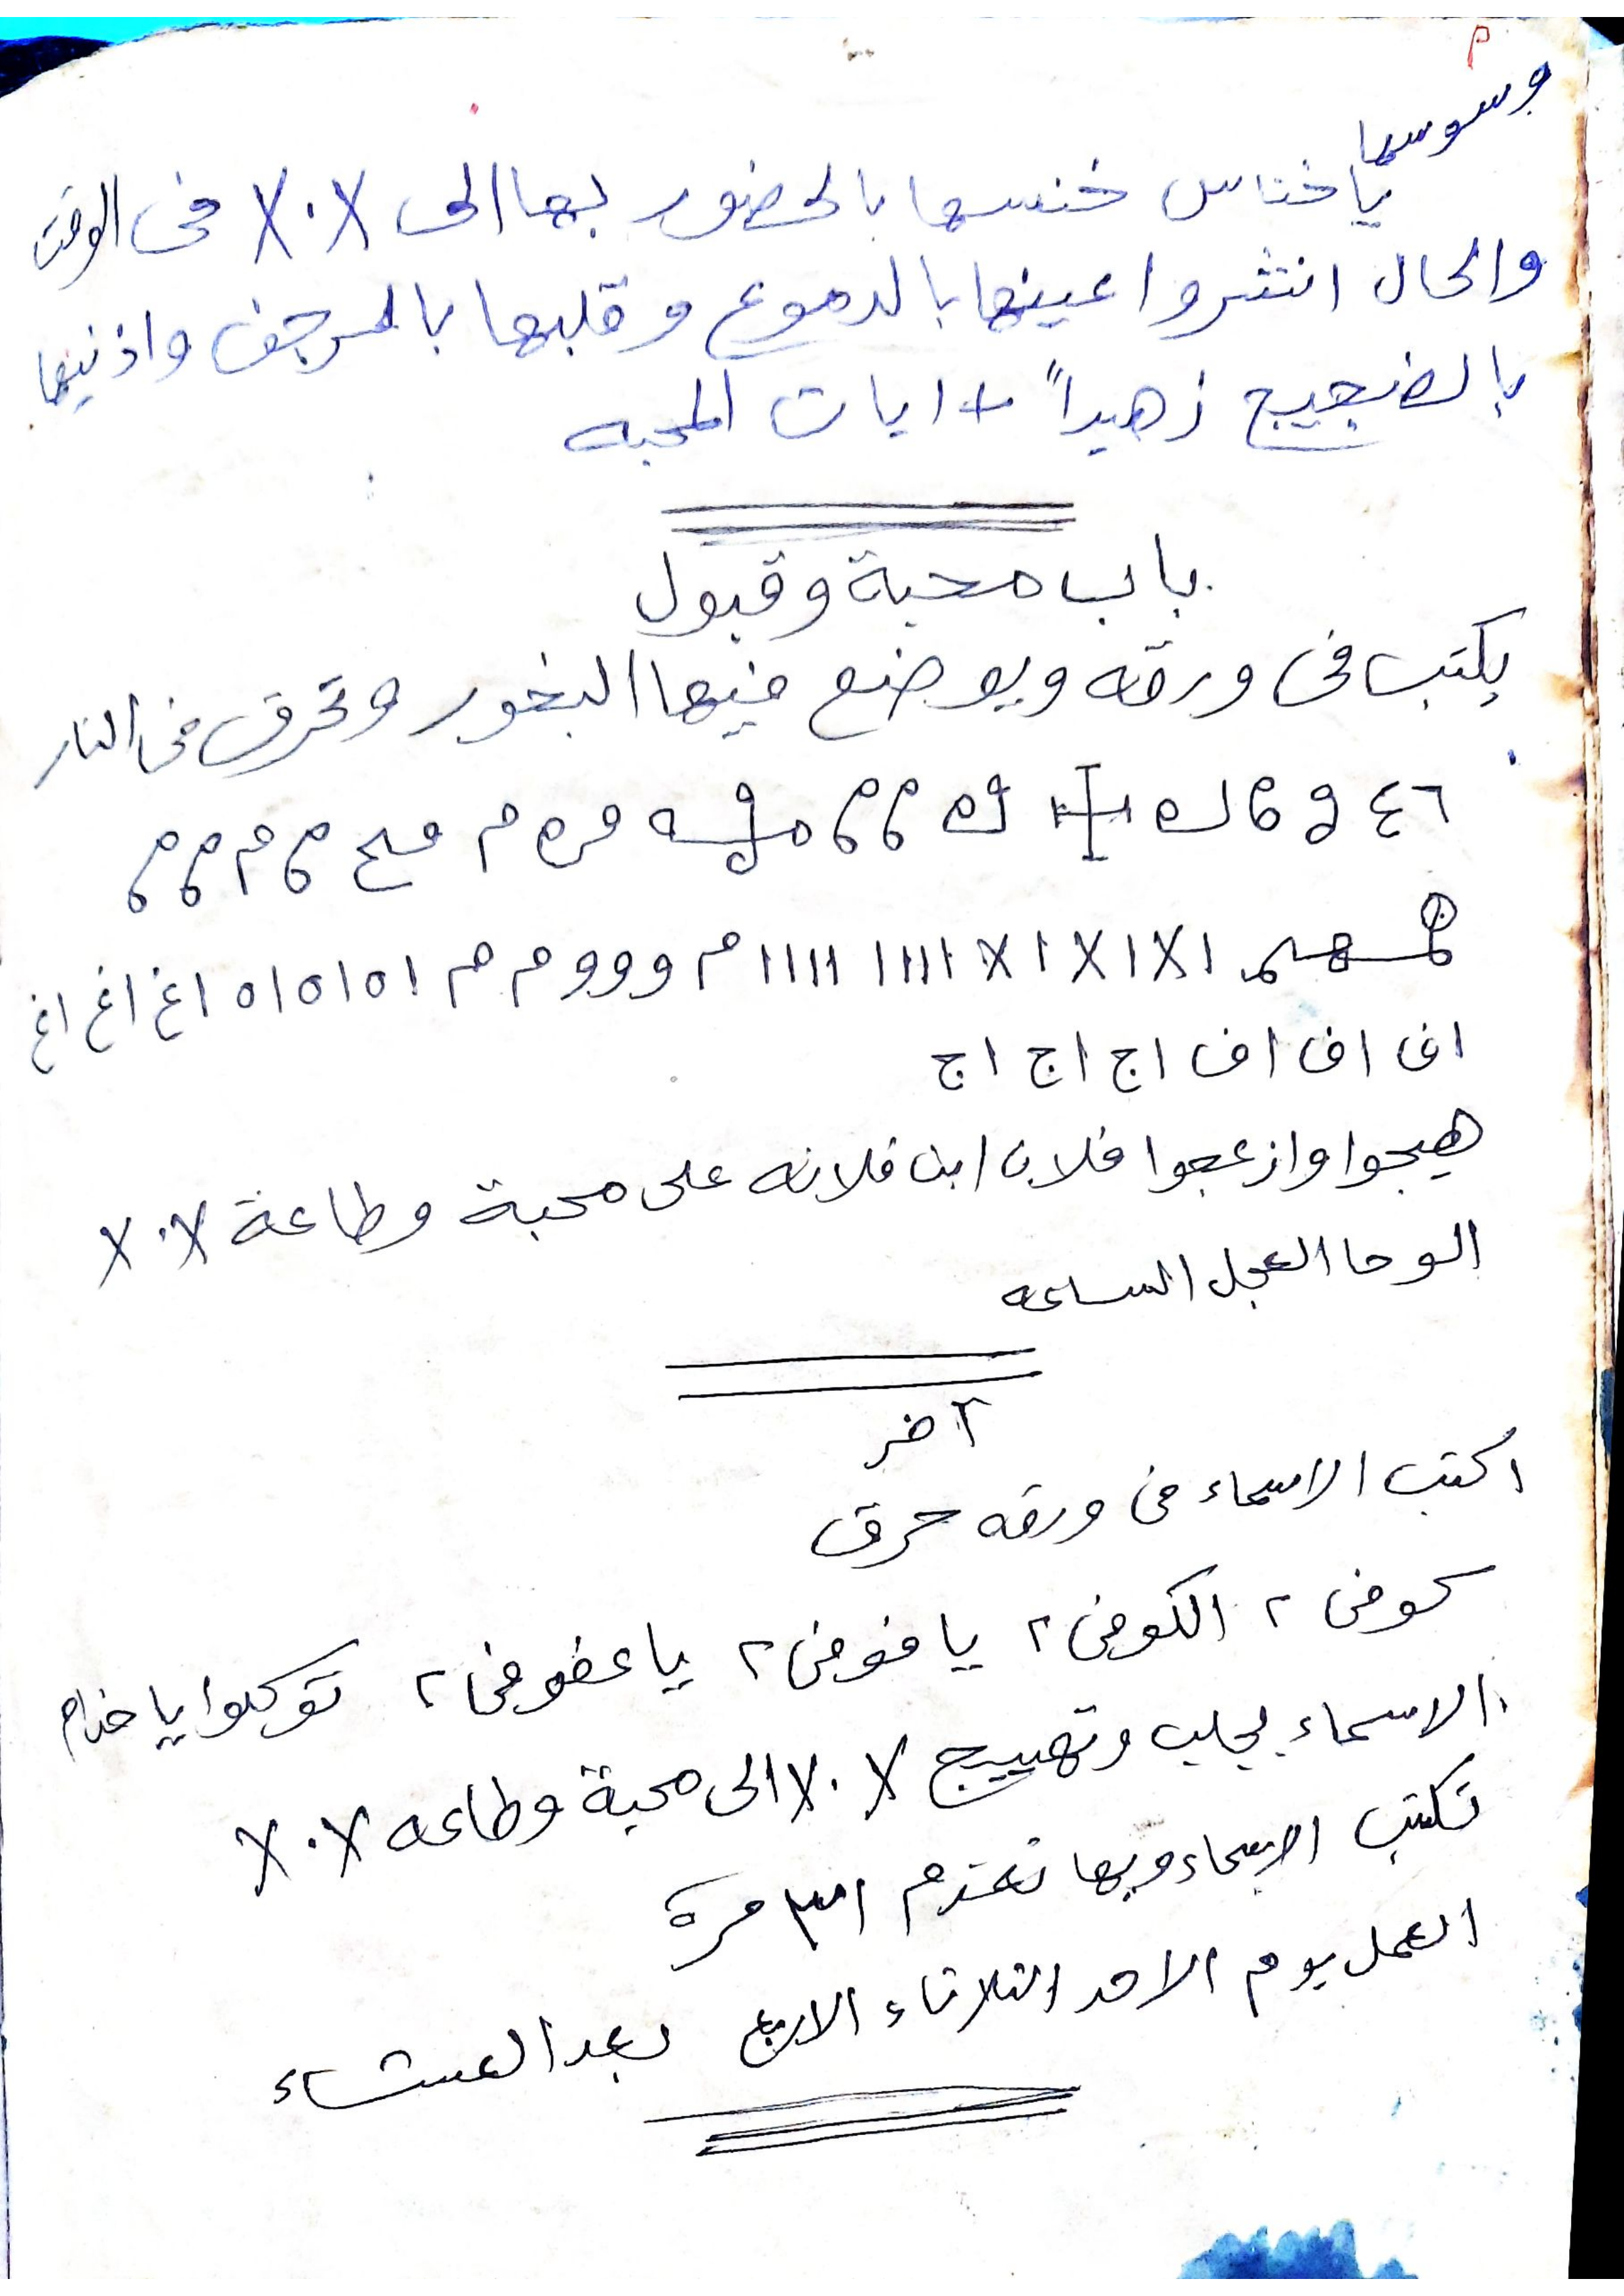 م
وسوسها
يا خناس خنسها بالحضور بها الى X٠X فى الوقت
والحال انتشروا عينها بالدموع وقلبها بالرجف واذنيها
بالضجيج زهيداً + ايات المحبه
باب محبة وقبول
يكتب فى ورقه ويوضع فيها البخور وتحرق فى النار
١X١X١X١ ١١١١ ١١١١١ م و و و م م ١٥١٥١٥ اغ اغ اغ
اف اف اف اج اج اج
هيجوا وازعجوا فلان ابن فلانه على محبة وطاعة X٠X
الوحا العجل الساعه
آخر
اكتب الاسماء فى ورقه حرق
كوفى ٢ الكوفى ٢ يا فوفى ٢ يا عفوفى ٢ توكلوا يا خدام
الاسماء بجلب وتهييج X٠X الى محبة وطاعه X٠X
تكتب الاسماء وبها تعزم ٣١ مرة
العمل يوم الاحد الثلاثاء الاربع بعد العشاء